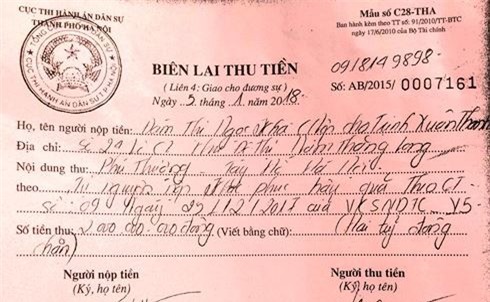 CỤC THI HÀNH ÁN DÂN SỰ
THÀNH PHỐ HÀ NỘI
Mẫu số C28-THA
Ban hành kèm theo TT số: 91/2010/TT-BTC
ngày 17/6/2010 của Bộ Tài chính
BIÊN LAI THU TIỀN
0918149898-
(Liên 4: Giao cho đương sự)
Số: AB/2015/ 0007161
Ngày 5. tháng .1. năm 2018.
Họ, tên người nộp tiền: Đàm Thị Ngọc Kha (Nộp cho Trịnh Xuân Thanh
Địa chỉ: Số 24 Khu Đô Thị Nam Thăng Long
Nội dung thu: Phú Thượng - Tây Hồ Hà Nội
theo Tự nguyện nộp khắc phục hậu quả Theo CT
số: 09 Ngày 29/12/2017 của VKSNDTC V5-
Số tiền thu: 2.000.000.000 đồng (Viết bằng chữ) (Hai tỷ đồng
chẵn)
Người nộp tiền
Người thu tiền
(Ký, họ tên)
(Ký, họ tên)